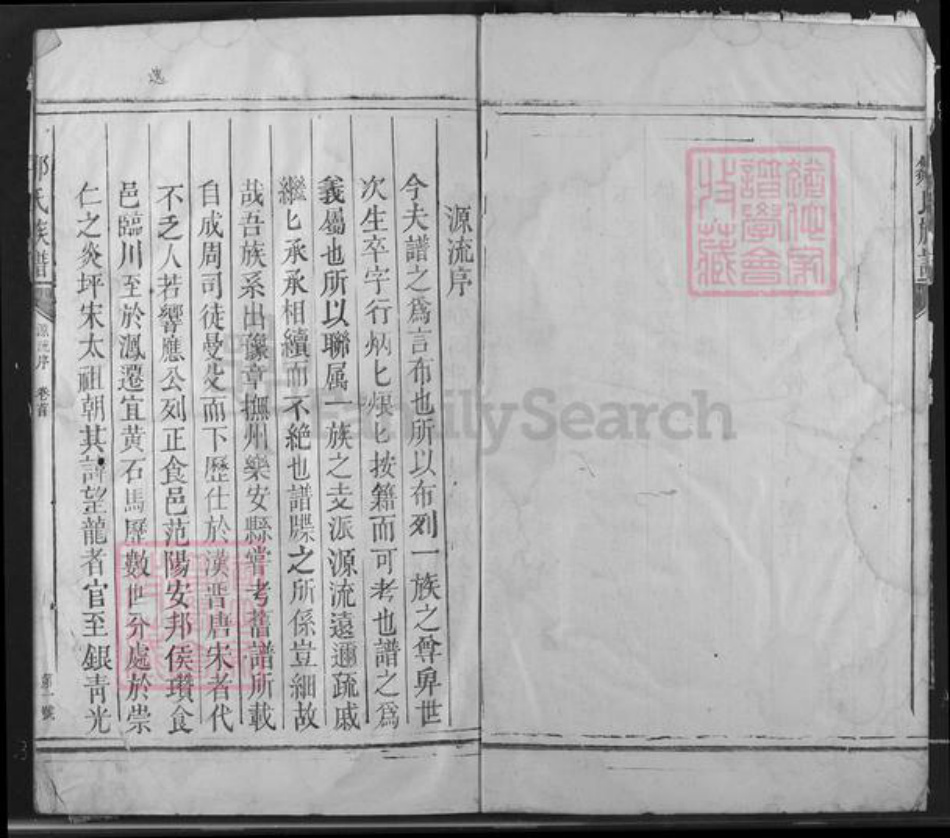 源流序
今夫譜之為言布也所以布列一族之尊卑世
次生卒字行炳匕煨匕按籍而可考也譜之為
義屬也所以聯属一族之支派源流遠邇疏戚
繼匕承承相續而不絶也譜牒之所係豈細故
哉吾族系出豫章撫州樂安縣甞考舊譜所載
自成周司徒曼父而下歷仕於漢晋唐宋者代
不乏人若響應公列正食邑范陽安邦侯瓚食
邑臨川至於渢遷宜黄石馬歷數世分處於崇
仁之炎坪宋太祖朝其諱望龍者官至銀青光
氏族譜
源流序
卷首
第一號
譜學會
收藏
FamilySearch